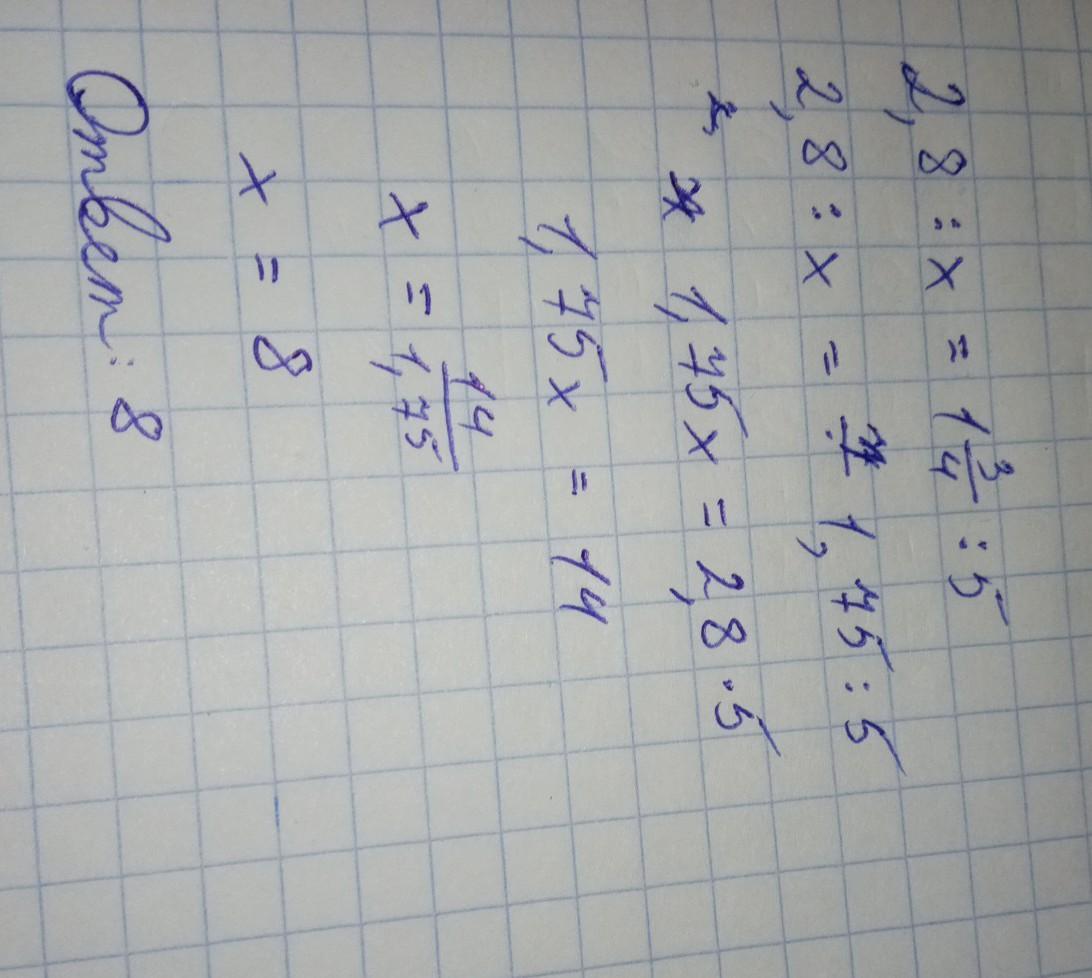 2,8 : x = 1 3/4 : 5
2,8 : x = 1,75 : 5
1,75x = 2,8 · 5
1,75x = 14
x = 14/1,75
x = 8
Ответ: 8